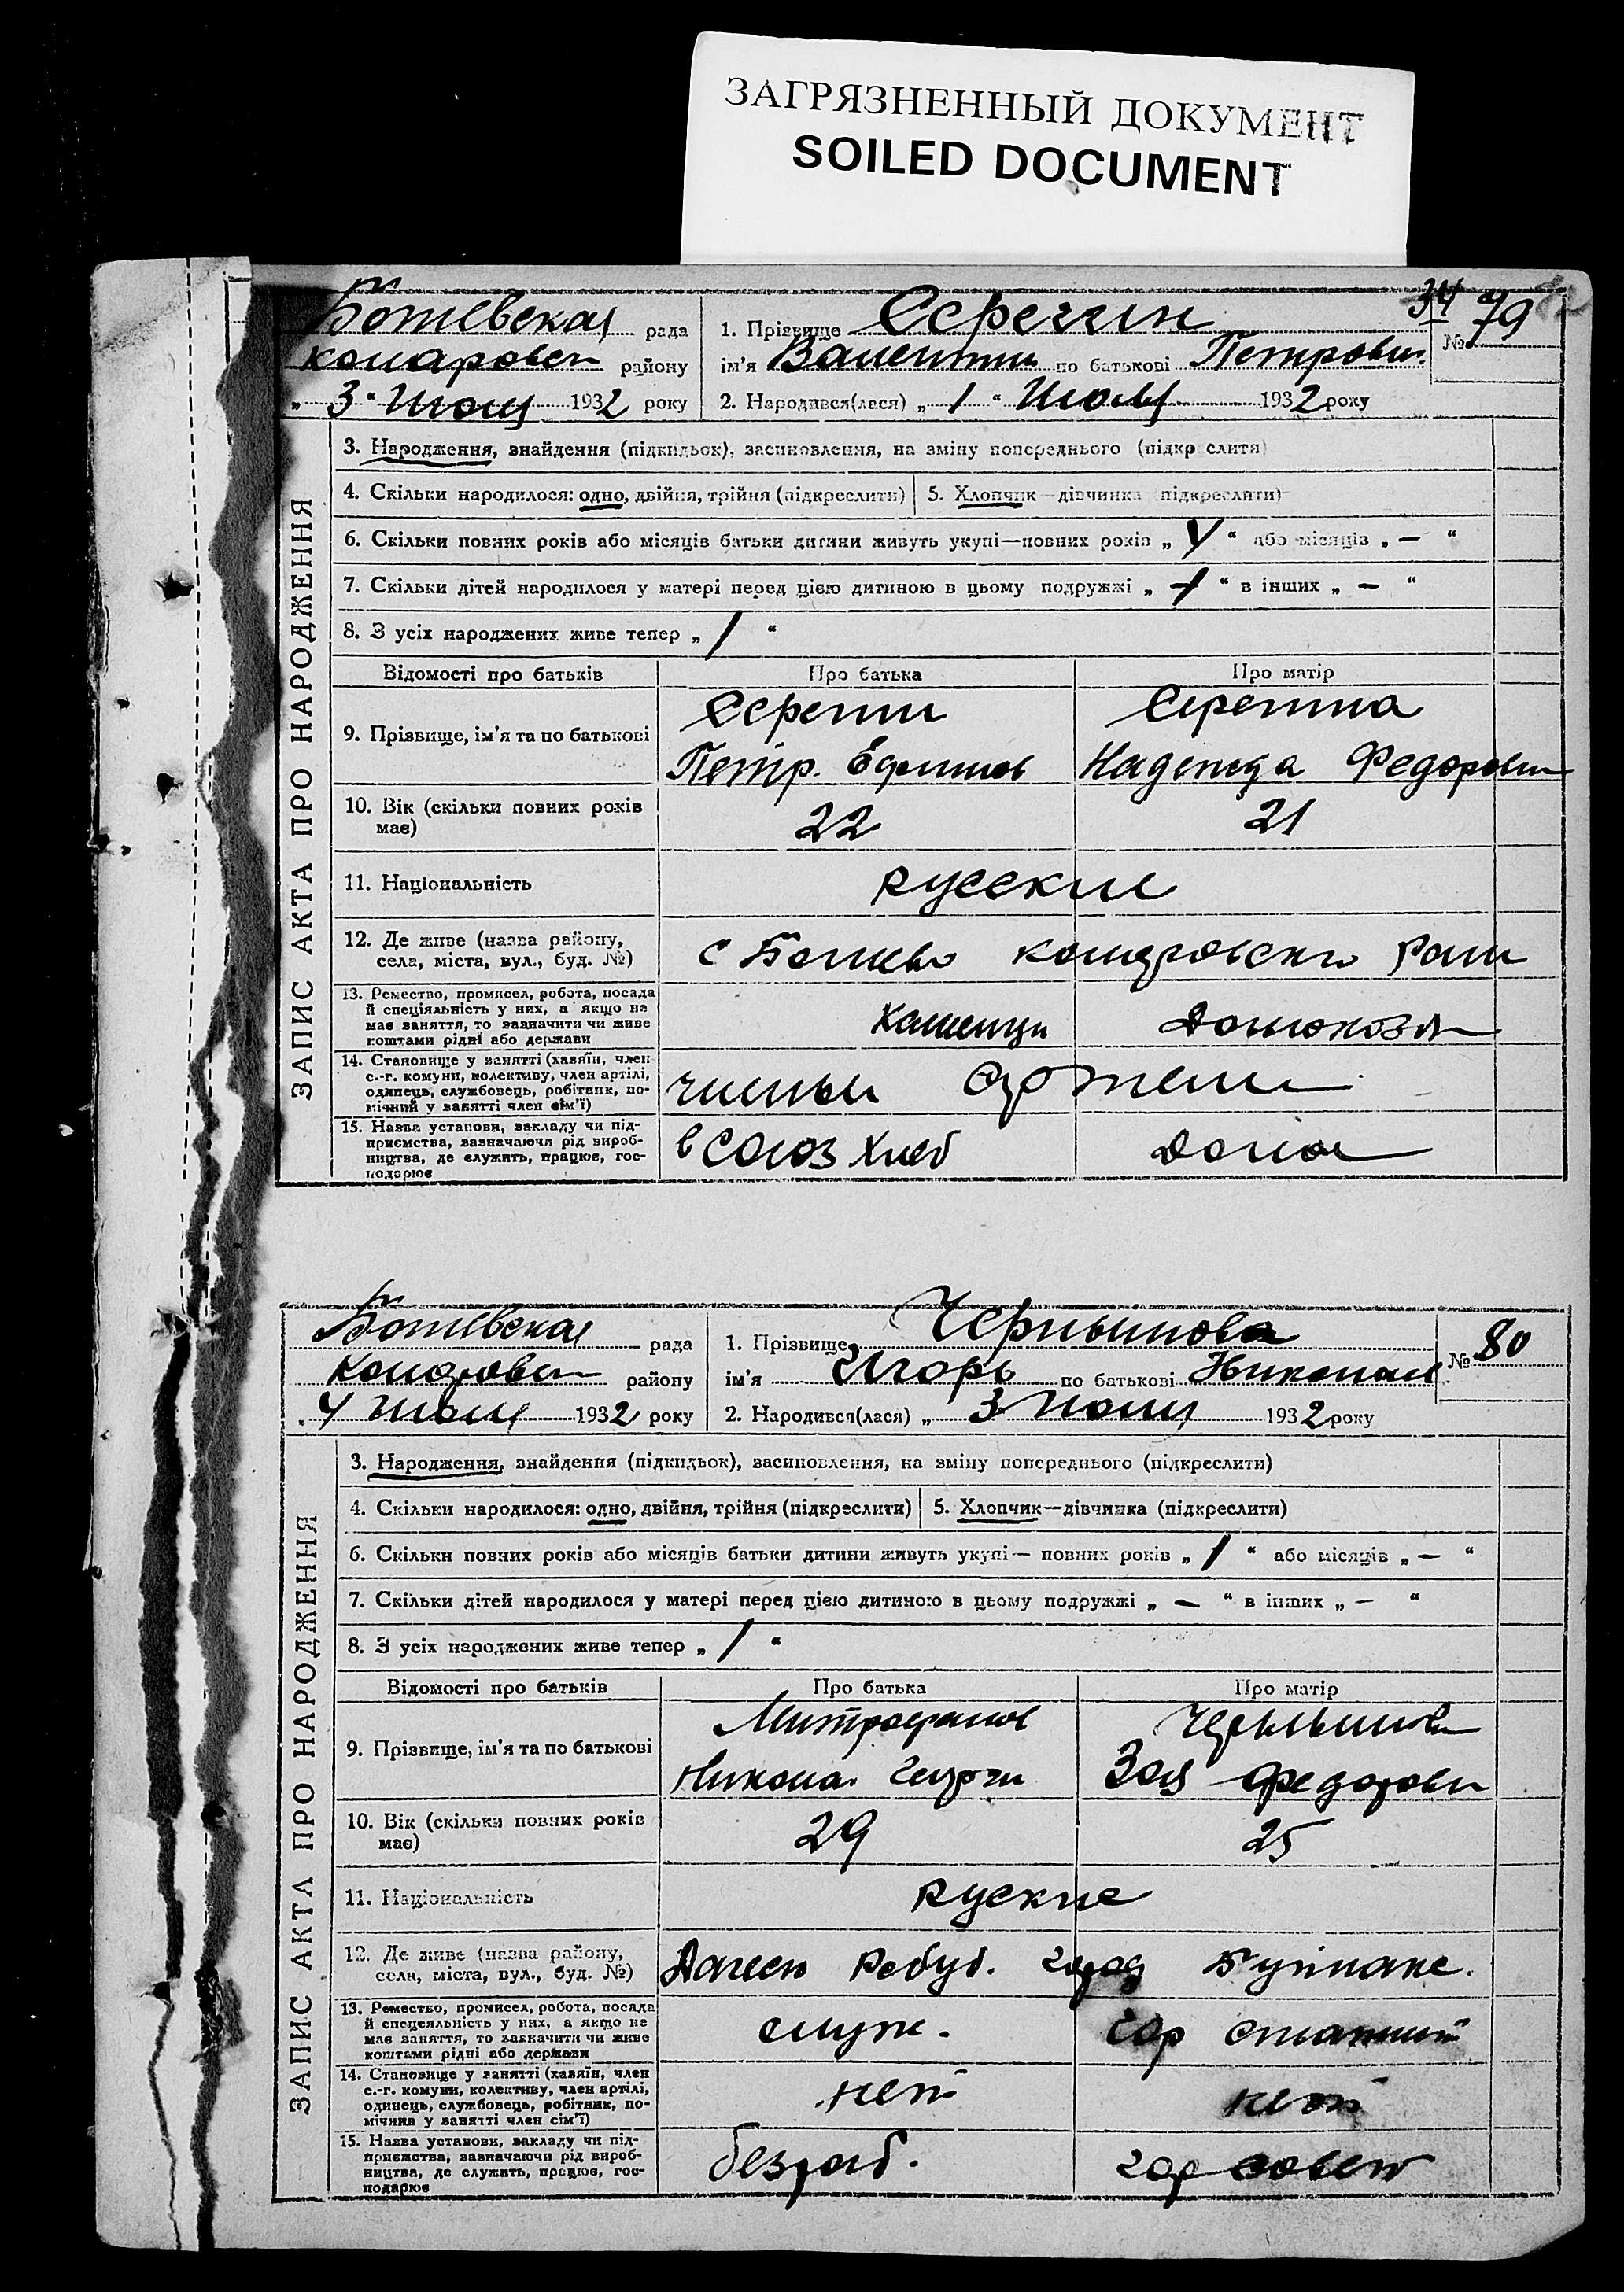 ЗАГРЯЗНЕННЫЙ ДОКУМЕНТ
SOILED DOCUMENT
34
Ботевская рада
1. Прізвище Серегин
№ 79
району
ім'я Валентин по батькові Петрович
„ 3 " Июля 1932 року
2. Народився(лася) „ 1 " Июля 1932 року
ЗАПИС АКТА ПРО НАРОДЖЕННЯ
3. Народження, знайдення (підкидьок), засиновлення, на зміну попереднього (підкреслити)
4. Скільки народилося: одно, двійня, трійня (підкреслити)
5. Хлопчик—дівчинка (підкреслити)
6. Скільки повних років або місяців батьки дитини живуть укупі—повних років „ " або місяців „ — "
7. Скільки дітей народилося у матері перед цією дитиною в цьому подружжі „ " в інших „ — "
8. З усіх народжених живе тепер „ 1 "
Відомості про батьків
Про батька
Про матір
9. Прізвище, ім'я та по батькові
Серегин
Серегина
Петр.
Надежда Федоровн
10. Вік (скільки повних років має)
22
21
11. Національність
русские
12. Де живе (назва району, села, міста, вул., буд. №)
с
13. Ремество, промисел, робота, посада
й спеціяльність у них, а якщо не
має заняття, то зазначити чи живе
коштами рідні або держави
14. Становище у занятті (хазяїн, член
с.-г. комуни, колективу, член артілі,
одинець, службовець, робітник, по-
мічний у занятті член сім'ї)
15. Назва установи, закладу чи під-
приємства, зазначаючи рід вироб-
ництва, де служить, працює, гос-
подарює
в Союз Хлеб
Ботевская рада
1. Прізвище
№ 80
району
ім'я Игорь по батькові Николаев
„ 4 Июля 1932 року
2. Народився(лася) „ 3 Июля 1932 року
ЗАПИС АКТА ПРО НАРОДЖЕННЯ
3. Народження, знайдення (підкидьок), засиновлення, на зміну попереднього (підкреслити)
4. Скільки народилося: одно, двійня, трійня (підкреслити)
5. Хлопчик—дівчинка (підкреслити)
6. Скільки повних років або місяців батьки дитини живуть укупі— повних років „ 1 " або місяців „ — "
7. Скільки дітей народилося у матері перед цією дитиною в цьому подружжі „ — " в інших „ — "
8. З усіх народжених живе тепер „ 1 "
Відомості про батьків
Про батька
Про матір
9. Прізвище, ім'я та по батькові
Митрофанов
Никола. Георги
Зоя Федоровн
10. Вік (скільки повних років має)
29
25
11. Національність
руские
12. Де живе (назва району, села, міста, вул., буд. №)
город Буйнакс.
13. Ремество, промисел, робота, посада
й спецеяльність у них, а якщо не
має заняття, то зазначити чи живе
коштами рідні або держави
служ.
14. Становище у занятті (хазяїн, член
с.-г. комуни, колективу, член артілі,
одинець, службовець, робітник, по-
мічник у занятті член сім'ї)
нет
нет
15. Назва установи, закладу чи під-
приємства, зазначаючи рід вироб-
ництва, де служить, працює, гос-
подарює
безраб.
гор совет